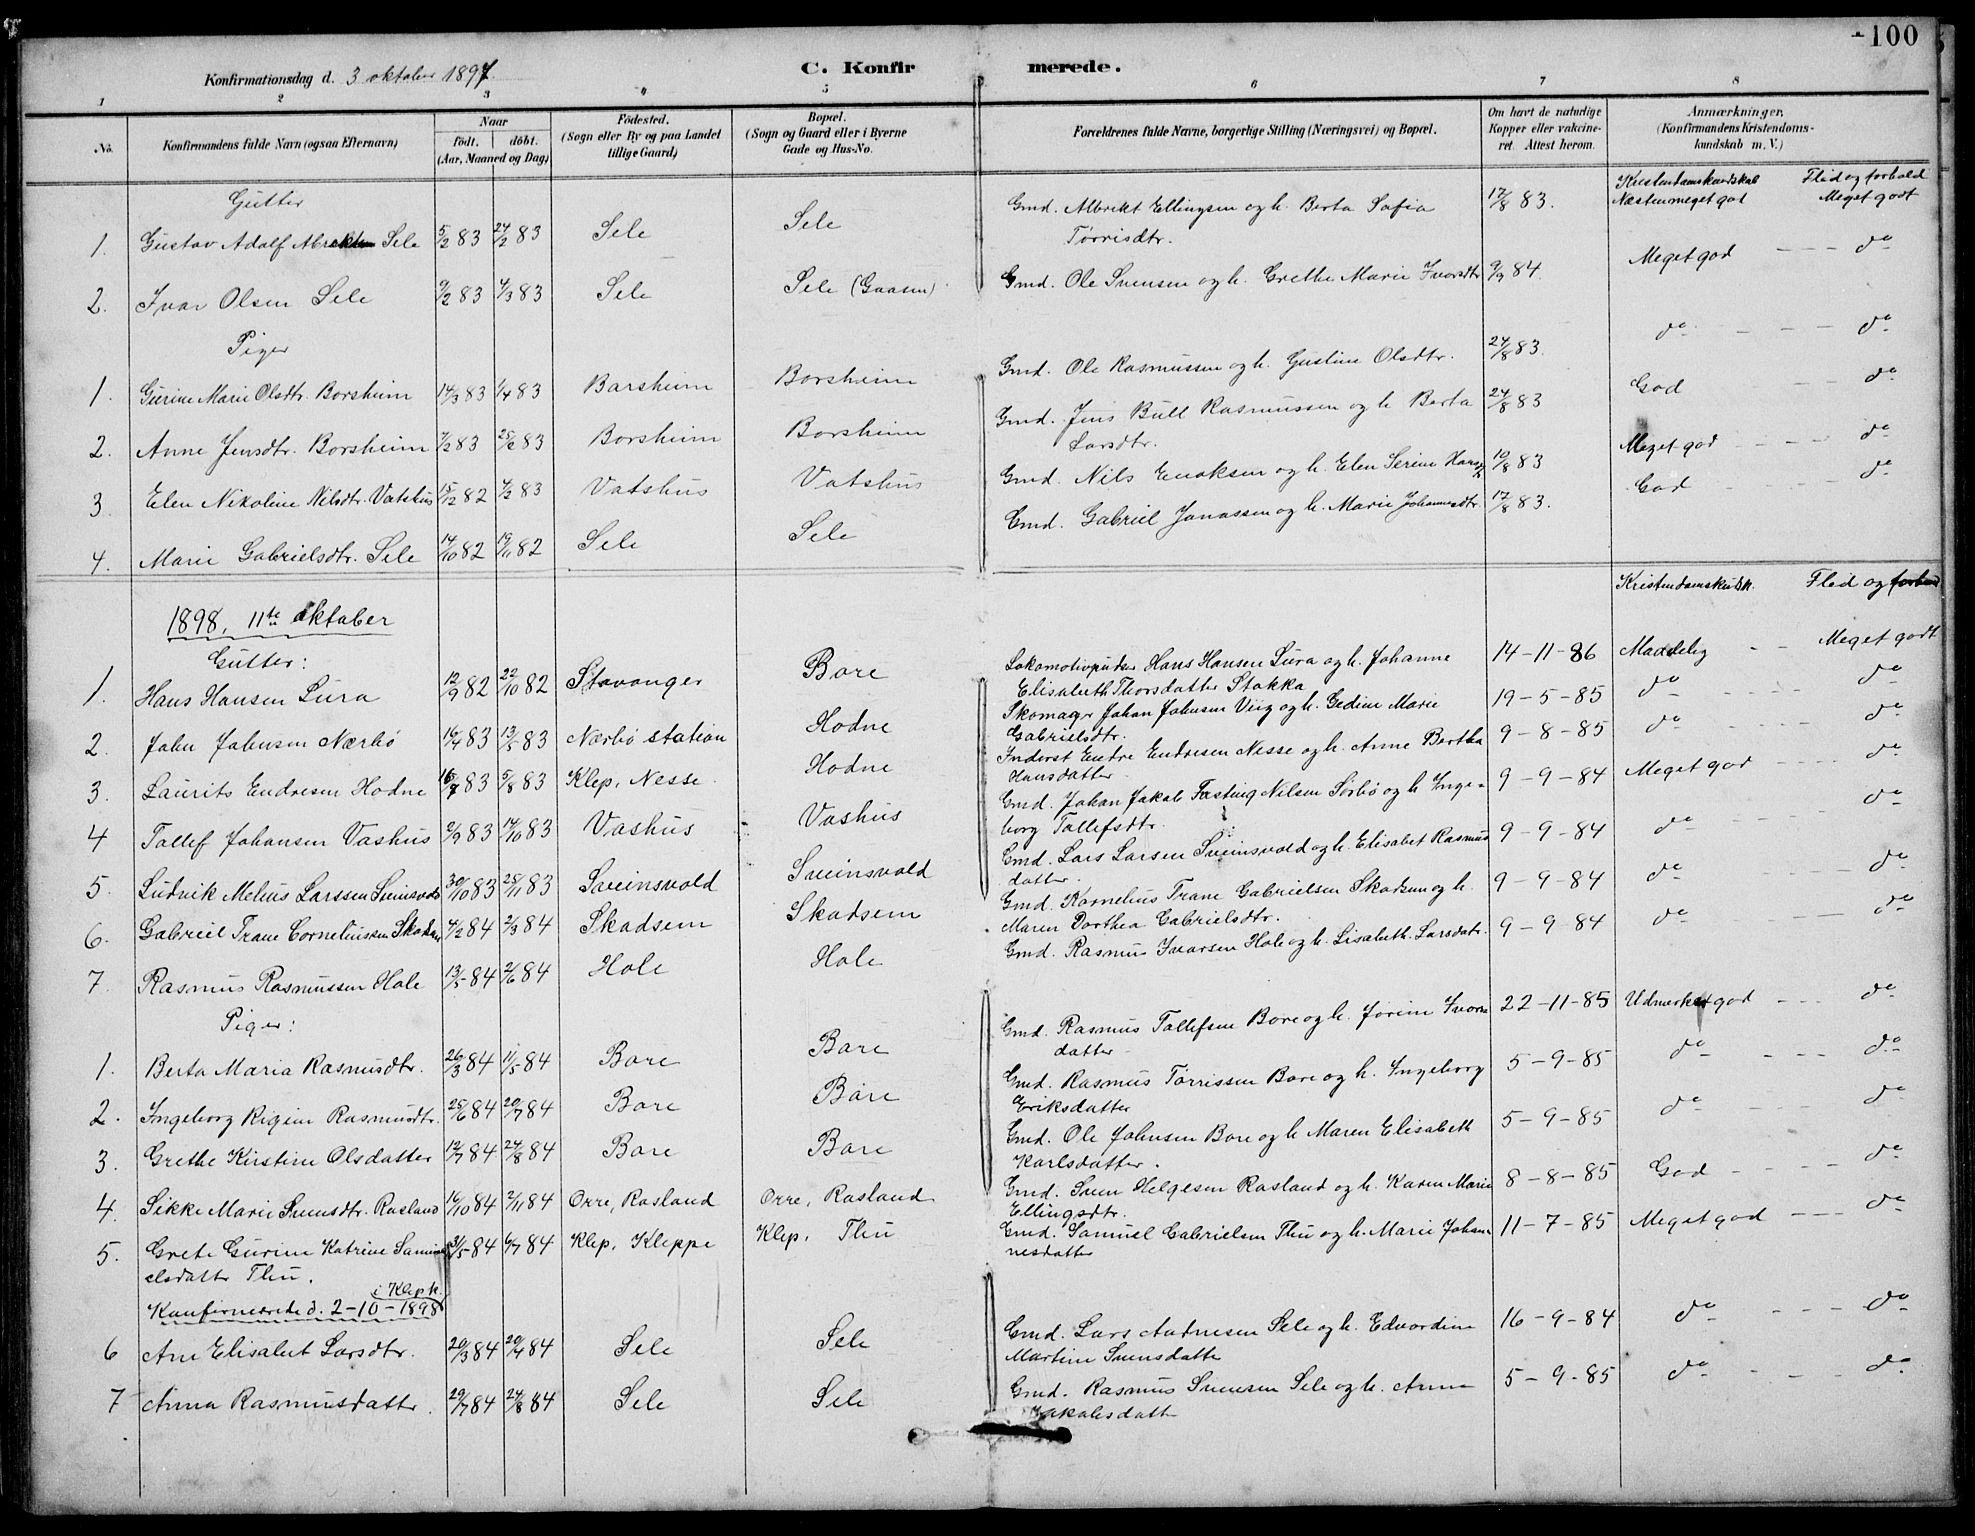 100
Konfirmationsdag d. 3 oktober 1897.
C. Konfirmerede.
1 2 3 4 5 6 7 8
No. Konfirmandens fulde Navn (ogsaa Efternavn) Naar født. døbt. (Aar, Maaned og Dag) Fødested. (Sogn eller By og paa Landet tillige Gaard) Bopæl. (Sogn og Gaard eller i Byerne Gade og Hus-No. Forældrenes fulde Navne, borgerlige Stilling (Næringsvei) og Bopæl. Om havt de naturlige Kopper eller vakcineret. Attest herom. Anmærkninger, (Konfirmandens Kristendomskundskab m. V.)
Kristendomskundskab Flid og forhold
Gutter
1. Gustav Adolf Sele 5/2 83 24/2 83 Sele Sele Gmd. Albrekt Ellingsen og h. Berta Sofia 17/8 83. Næsten meget god Meget godt
Tørrisdtr.
2. Ivar Olsen Sele 9/2 83 4/3 83 Sele Sele (Gaasen) Gmd. Ole Svensen og h. Grethe Marie Ivarsdtr 9/9 84. Meget god - - - do
Piger
1. Gurine Marie Olsdtr. Borsheim 14/3 83 1/4 83 Barsheim Borsheim Gmd. Ole Rasmussen og h. Gustine Olsdtr. 24/8 83. do - - - do
2. Anne Jensdtr. Borsheim 7/2 83 25/2 83 Borsheim Borsheim Gmd. Jens Bull Rasmussen og h Berta 24/8 83 God - - do
Larsdtr.
3 Elen Nikoline Nilsdtr. Vatshus 15/12 82 4/2 83 Vatshus Vatshus Gmd. Nils Enoksen og h. Elen Serine 10/8 83 Meget god - - - do
4. Marie Gabrielsdtr. Sele 14/10 82 19/11 82 Sele Sele Gmd. Gabriel Jonassen og h. Marie Johannesdtr 17/8 83. God - - - do
1898, 11te oktober
Kristendomskundsk. Flid og forhold
Gutter:
1. Hans Hansen Lura 12/9 82 22/10 82 Stavanger Bore Lokomotivpudser Hans Hansen Lura og h. Johanne 14-11-86 Maadelig - - Meget godt
Elisabeth Thorsdatter Stokka
2. John Johnsen Nærbø 16/4 83 13/5 83 Nærbø station Hodne Skomager Johan Johnsen Viig og h. Gedine Marie 19-5-85 do - - - do
Gabrielsdtr.
3. Laurits Endresen Hodne 16/7 83 5/8 83 Klep, Nesse. Hodne Inderst Endre Endresen Nesse og h. Anne Bertha 9-8-85 do - - - do
Hansdatter
4 Tollef Johansen Vashus 2/9 83 14/10 83 Vashus Vashus Gmd. Johan Jakob Fasting Nilsen Sørbø og h Inge- 9-9-84 Meget god - - - do
borg Tollefsdtr.
5. Ludvik Melius Larssen Sveinsvold 30/10 83 25/11 83 Sveinsvold Sveinsvold Gmd. Lars Larsen Sveinsvold og h. Elisabet Rasmus 9-9-84 do - - - do
datter.
6. Gabriel Trane Corneliussen Skadsem 4/2 84 2/3 84 Skadsem Skadsem Gmd. Kornelius Trane Gabrielsen Skadsem og h. 9-9-84 do - - - do
Maren Dorthea Gabrielsdtr.
7. Rasmus Rasmussen Hole 13/5 84 2/6 84 Hole Hole Gmd. Rasmus Ivarsen Hole og h. Lisabeth Larsdatr. 9-9-84 do - - - do
Piger:
1. Berta Maria Rasmusdtr. 26/3 84 11/5 84 Bore Bore Gmd. Rasmus Tollefsen Bore og h. Jorine Ivars 22-11-85 Udmerket god - - - do
datter
2. Ingeborg Rigine Rasmusdtr. 25/6 84 20/7 84 Bore Bore Gmd. Rasmus Tørrissen Bore og h. Ingeborg 5-9-85 do - - - do
Eriksdatter
3. Grethe Kirstine Olsdatter 12/7 84 24/8 84 Bore Bore Gmd. Ole Johnsen Bore og h Maren Elisabeth 5-9-85 do - - - do
Karlsdatter.
4. Sikke Marie Svensdtr. Rasland 16/10 84 2/11 84 Orre, Rasland Orre, Rasland Gmd. Sven Helgesen Rasland og h. Karen Marie 8-8-85 God - - - do
Ellingsdtr.
5. Grete Gurine Katrine Samu- 31/5 84 6/7 84 Klep, Kleppe Klep, Thu Gmd. Samuel Gabrielsen Thu og h. Marie Johan 11-7-85 Meget god - - - do
elsdatter Thu. nesdatter
i Klep k.
Konfirmerede d. 2-10-1898
6 Ane Elisabet Larsdtr. 20/3 84 20/4 84 Sele Sele Gmd. Lars Andresen Sele og h. Edvardine 16-9-84 do - - - do
Martine Svensdatter
7 Anna Rasmusdatter. 29/7 84 24/8 84 Sele Sele Gmd. Rasmus Svensen Sele og h. Anna 5-9-85 do - - - do
Jakobsdatter